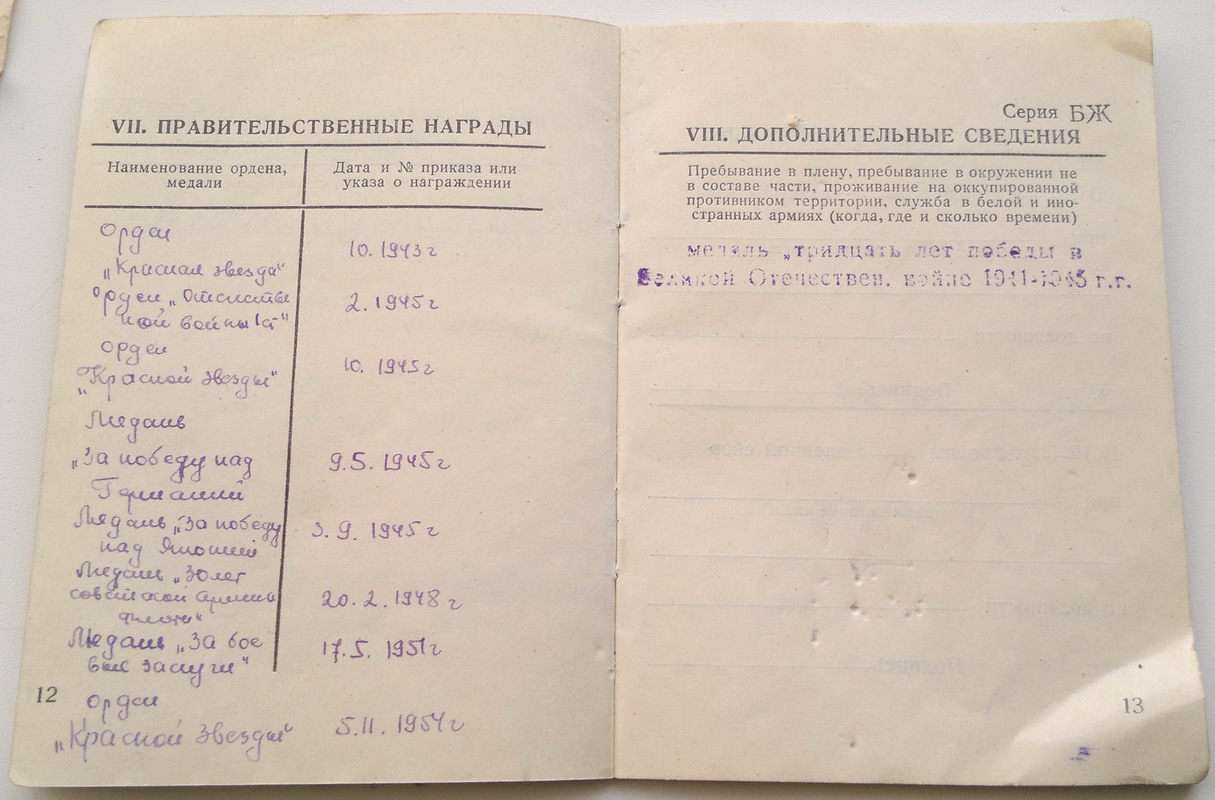 VII. ПРАВИТЕЛЬСТВЕННЫЕ НАГРАДЫ
Наименование ордена,
медали
Дата и № приказа или
указа о награждении
Орден
„Красная звезда"
10. 1943 г
Орден „Отечествен
ной войны Iст"
2. 1945 г
Орден
„Красной Звезды"
10. 1945 г
Медаль
„За победу над
Германией
9.5. 1945 г
Медаль „За победу
над Японией
3. 9. 1945 г
Медаль „30 лет
советской Армии и
флота"
20. 2. 1948 г
Медаль „За бое
вые заслуги"
17.5. 1951 г
12
Орден
„Красной Звезды"
5.11. 1954 г
Серия БЖ
VIII. ДОПОЛНИТЕЛЬНЫЕ СВЕДЕНИЯ
Пребывание в плену, пребывание в окружении не
в составе части, проживание на оккупированной
противником территории, служба в белой и ино-
странных армиях (когда, где и сколько времени)
медаль „тридцать лет победы в
Великой Отечествен. войне 1941-1945 г.г.
13